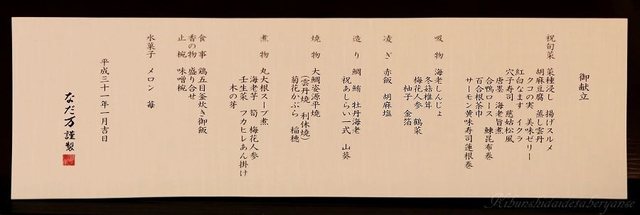 御献立
祝旬菜 菜種浸し 揚げスルメ
胡麻豆腐 蒸し雲丹
クコの実 美味ゼリー
紅白なます イクラ
穴子寿司 慈姑松風
唐墨 海老旨煮
合鴨ロース 鰊昆布巻
百合根茶巾
サーモン黄味寿司蓮根巻
吸物 海老しんじょ
冬菇椎茸 鶴菜
梅花人参
柚子 金箔
凌ぎ 赤飯 胡麻塩
造り 鯛 鮪 牡丹海老
祝あしらい一式 山葵
焼物 大鯛姿源平焼
(雲丹焼 利休焼)
菊花かぶら 稲穂
煮物 丸大根スープ煮
海老芋 筍 梅花人参
壬生菜 フカヒレあん掛け
木の芽
食事 鶏五目釜炊き御飯
香の物 盛り合せ
止椀 味噌椀
水菓子 メロン 苺
平成三十一年一月吉日
なだ万 謹製
Kibunshidaidesaberyanse